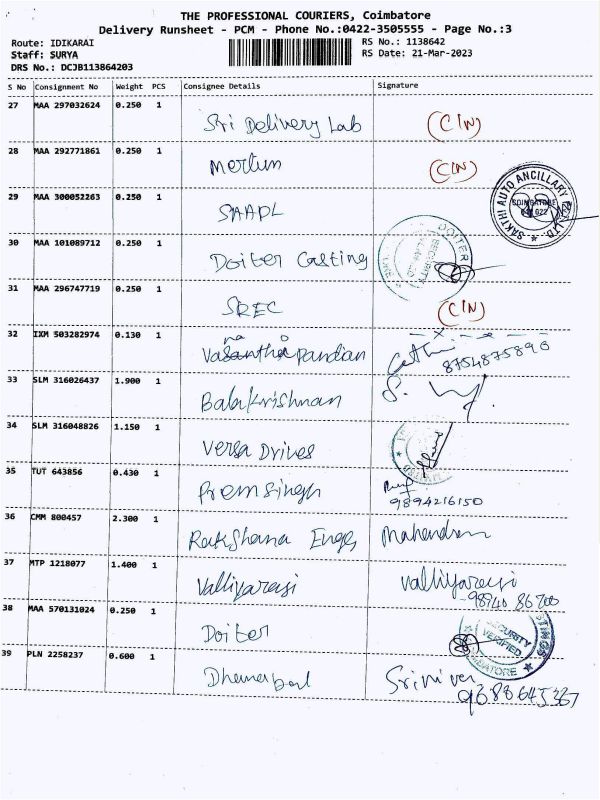 THE PROFESSIONAL COURIERS, Coimbatore
Delivery Runsheet - PCM - Phone No.:0422-3505555 - Page No.:3
Route: IDIKARAI
RS No.: 1138642
Staff: SURYA
RS Date: 21-Mar-2023
DRS No.: DCJB113864203
S No Consignment No Weight PCS Consignee Details Signature
27 MAA 297032624 0.250 1 Sri Delivery Lab (CIN)
28 MAA 292771861 0.250 1 Merlum (CIN)
29 MAA 300052263 0.250 1 SAAPL
SAKTHI AUTO ANCILLARY LTD. COIMBATORE
30 MAA 101089712 0.250 1 Doiter Casting
DOITER SECURITY
31 MAA 296747719 0.250 1 SREC (CIN)
32 IXM 503282974 0.130 1 Pandian 8754875890
33 SLM 316026437 1.900 1 Balakrishnan
34 SLM 316048826 1.150 1 Versa Drives
35 TUT 643856 0.430 1 Premsingh
9894216150
36 CMM 800457 2.300 1 Rakshana Engg Mahendran
37 MTP 1218077 1.400 1 Valliyarasi Valliyarasi
98940 86700
38 MAA 570131024 0.250 1 Doiter
SECURITY VERIFIED
39 PLN 2258237 0.600 1 Dhanabal